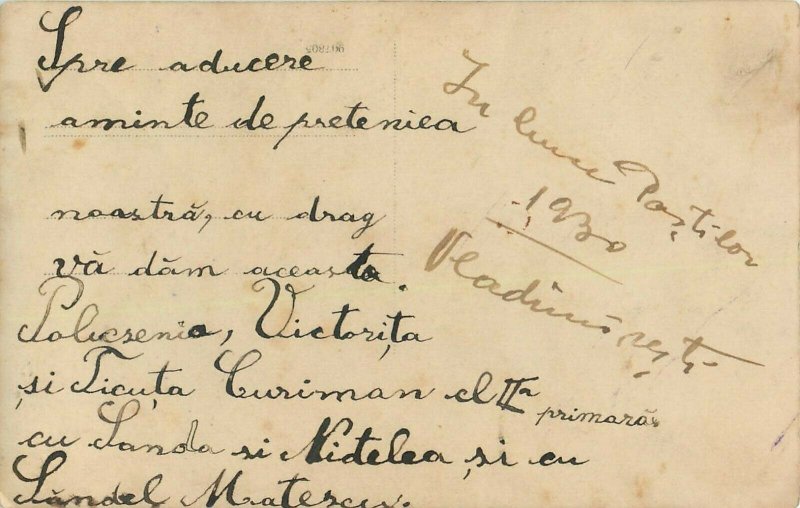 Spre aducere
aminte de preteniea
noastră, cu drag
vă dăm aceasta.
Policsenia, Victorița
și Ticuța Curiman cl IIa
primară
cu Sanda si Nidelea și cu
Săndel Matescu.
In luna Paștilor
1930
Vladimirești